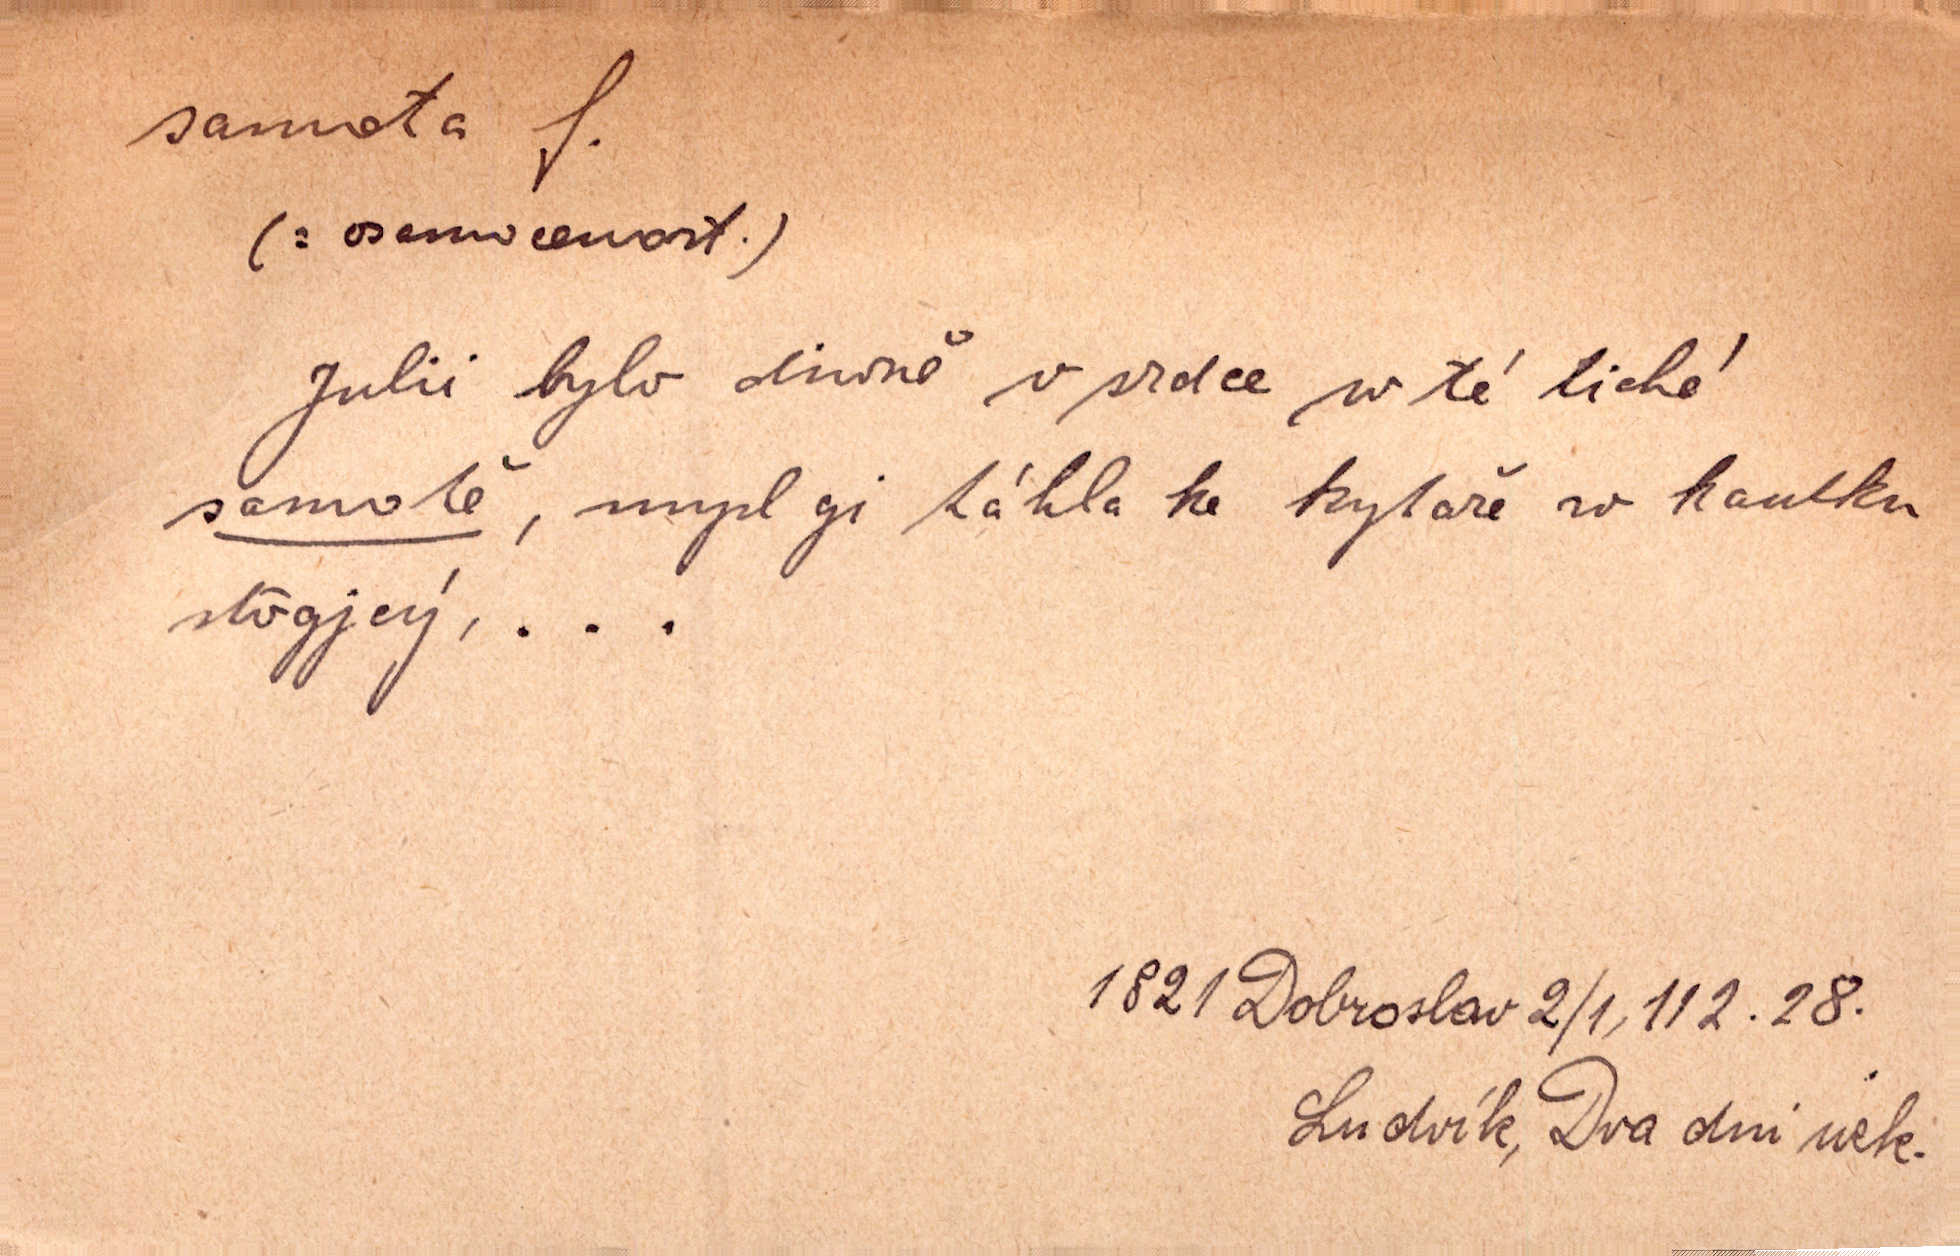 samota f.
(= osamocenost.)
Julii bylo diwně v srdce w té tiché
samotě, mysl gi táhla ke kytaře w kautku
stogjcý, . . .
1821 Dobroslav 2/1, 112. 28.
Ludvík, Dva dni